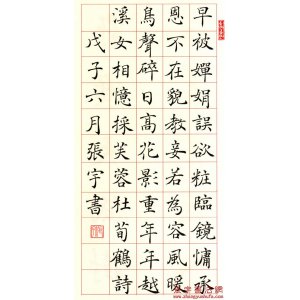 早被嬋娟誤欲粧臨鏡慵承
恩不在貌教妾若為容風暖
鳥聲碎日高花影重年年越
溪女相憶採芙蓉杜荀鶴詩
戊子六月張宇書